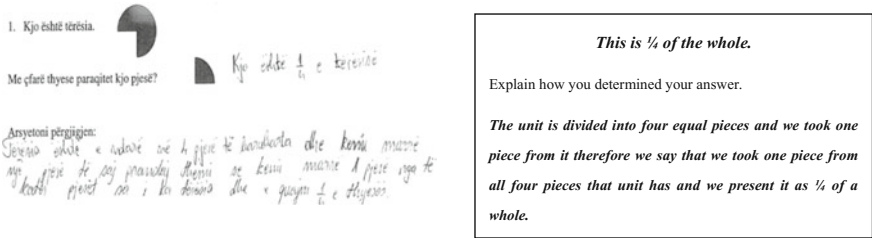 1. Kjo është tërësia.
Me çfarë thyese paraqitet kjo pjesë?
Kjo është 1/4 e tërësisë
Arsyetoni përgjigjen:
Tërësia është e ndarë në 4 pjesë të barabarta dhe kemi marrë
një pjesë të saj prandaj themi se kemi marrë 1 pjesë nga të
katër pjesët që i ka tërësia dhe e quajmë 1/4 e
This is ¼ of the whole.
Explain how you determined your answer.
The unit is divided into four equal pieces and we took one
piece from it therefore we say that we took one piece from
all four pieces that unit has and we present it as ¼ of a
whole.